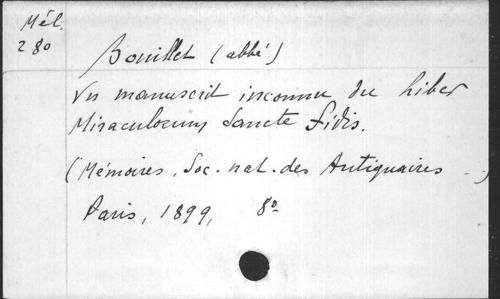 Mél.
280
Bouillet (abbé)
Un manuscrit inconnu du Liber
Miraculorum Sancte Fidis.
(Mémoires. Soc. nat. des Antiquaires . .)
Paris, 1899, 8º